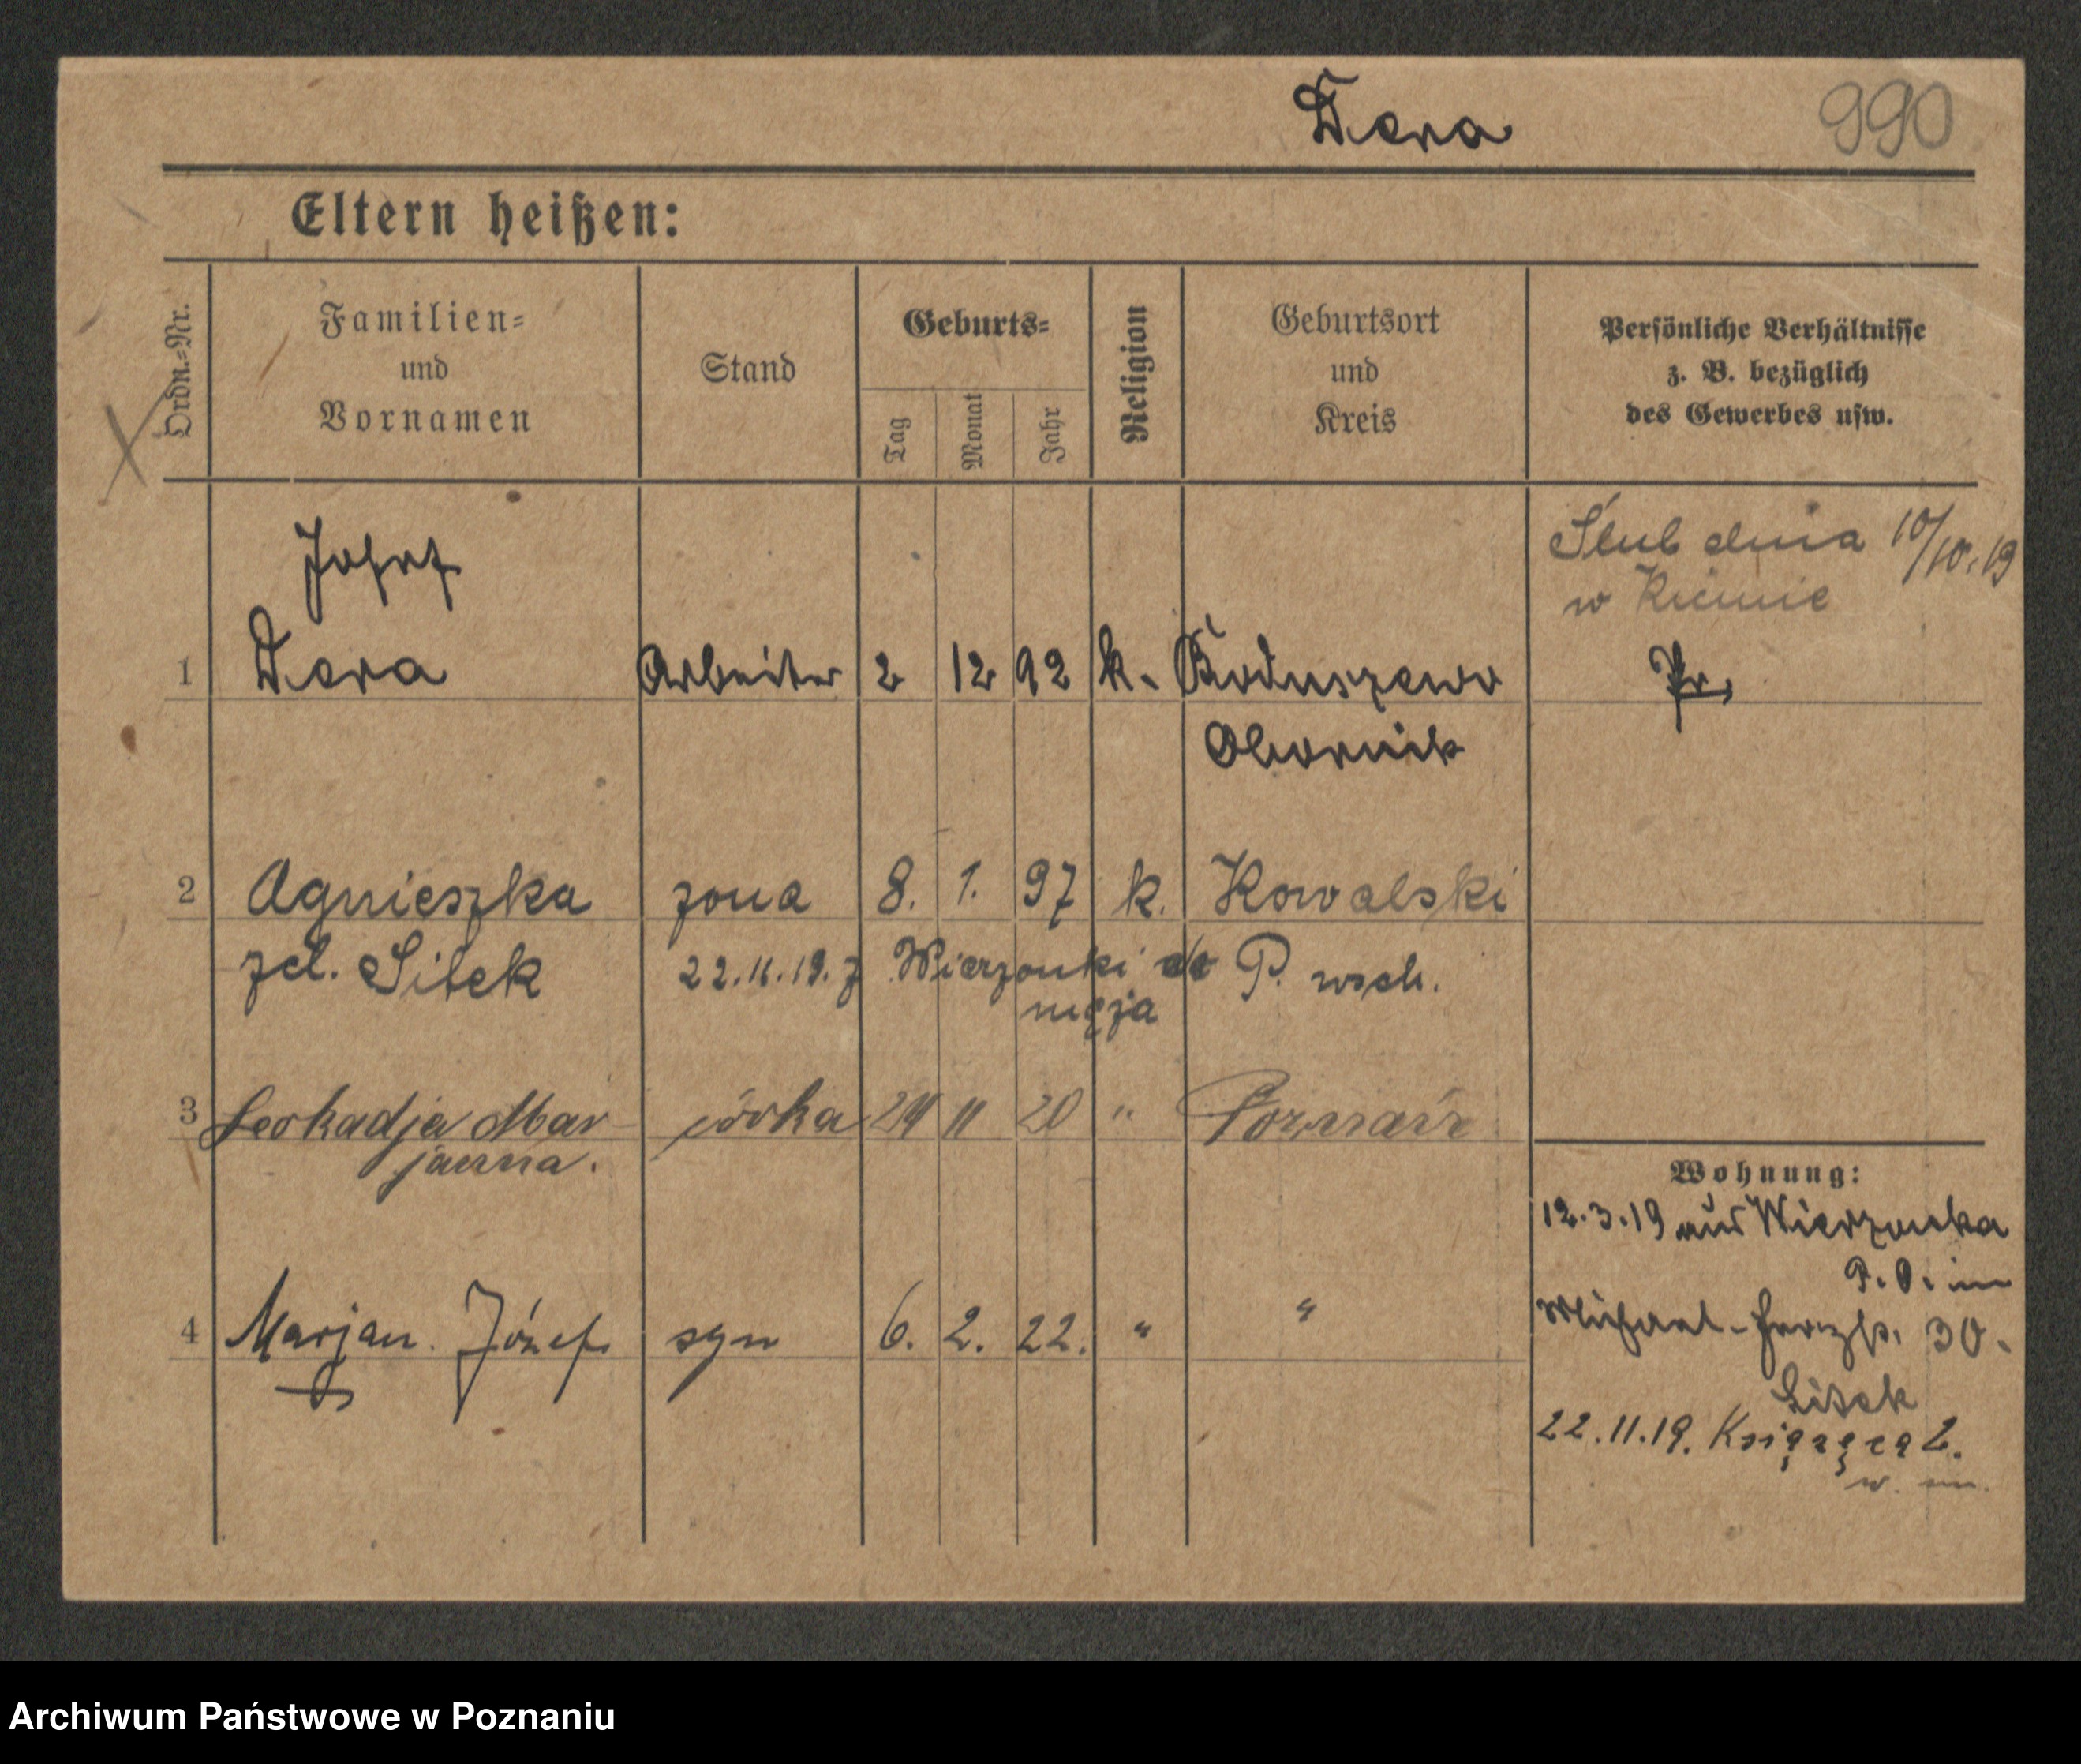 Dera 990
Eltern heißen:
Ordn.-Nr.
Familien-
und
Vornamen
Stand
Geburts-
Tag
Monat
Jahr
Religion
Geburtsort
und
Kreis
Persönliche Verhältnisse
z. B. bezüglich
des Gewerbes usw.
Ślub dnia 10/10.19
w Kicinie
Josef
1 Dera Arbeiter 2 12 92 k. Boduszewo Pr.
Obornik
2 Agnieszka żona 8. 1. 97 k. Kowalski
zd. Sitek 22.11.19. z Wierzonki do P. wsch.
męża
3 Leokadja Mar córka 24 11 20 " Poznań
janna.
Wohnung:
12.3.19 aus Wierzonka
P. O. im
4 Marjan Józef syn 6. 2. 22. " "
30.
Sitek
22.11.19. Książęca 2.
w. m.
Archiwum Państwowe w Poznaniu